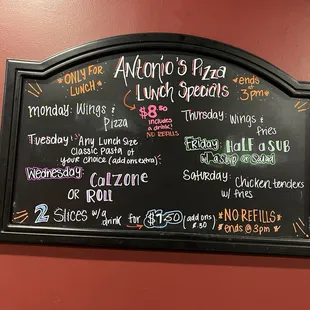 *ONLY FOR LUNCH*
Antonio's Pizza
Lunch Specials
*ends @ 3pm*
$8.50
includes a drink!
NO REFILLS
Monday: Wings & Pizza
Tuesday: Any Lunch Size
Classic Pasta of
your choice (add ons extra)
Wednesday: CalZONE
OR ROLL
Thursday: Wings & fries
Friday: Half a SUB
w/a Soup or Salad
Saturday: Chicken tenders
w/ fries
2 Slices w/a drink for $7.50 (add ons $.50)
*NO REFILLS*
ends @ 3 pm